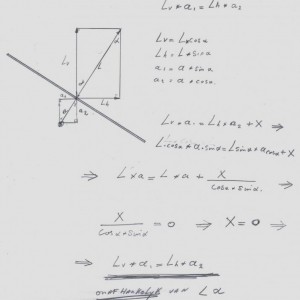 Lv * a₁ = Lh * a₂
Lv = L * cosα
Lh = L * sinα
a₁ = a * sinα
a₂ = a * cosα
Lv
L
α
α
a₁
Lh
a₂
Lv * a₁ = Lh * a₂ + X ⇒
L * cosα * a * sinα = L * sinα * a * cosα + X
⇒ L * a = L * a + X / (cosα * sinα) ⇒
X / (cosα * sinα) = 0 ⇒ X = 0 ⇒
⇒ Lv * a₁ = Lh * a₂
onafhankelijk van ∠ α